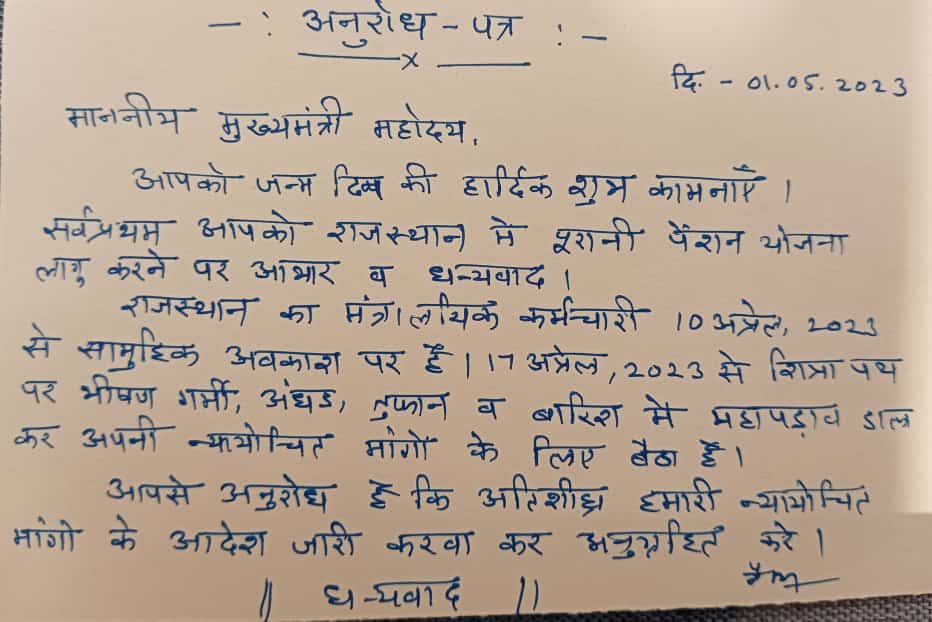 - : अनुरोध - पत्र : -
x
दि. - 01.05.2023
माननीय मुख्यमंत्री महोदय,
आपको जन्म दिन की हार्दिक शुभ कामनाएँ ।
सर्वप्रथम आपको राजस्थान मे पूरानी पेंशन योजना
लागु करने पर आभार व धन्यवाद ।
राजस्थान का मंत्रालयिक कर्मचारी 10 अप्रेल, 2023
से सामुहिक अवकाश पर है । 17 अप्रेल, 2023 से शिप्रा पथ
पर भीषण गर्मी, अंधड, तुफान व बारिश मे महापड़ाव डाल
कर अपनी न्यायोचित मांगों के लिए बैठा है ।
आपसे अनुरोध है कि अतिशीघ्र हमारी न्यायोचित
मांगो के आदेश जारी करवा कर अनुग्रहित करे ।
|| धन्यवाद ||